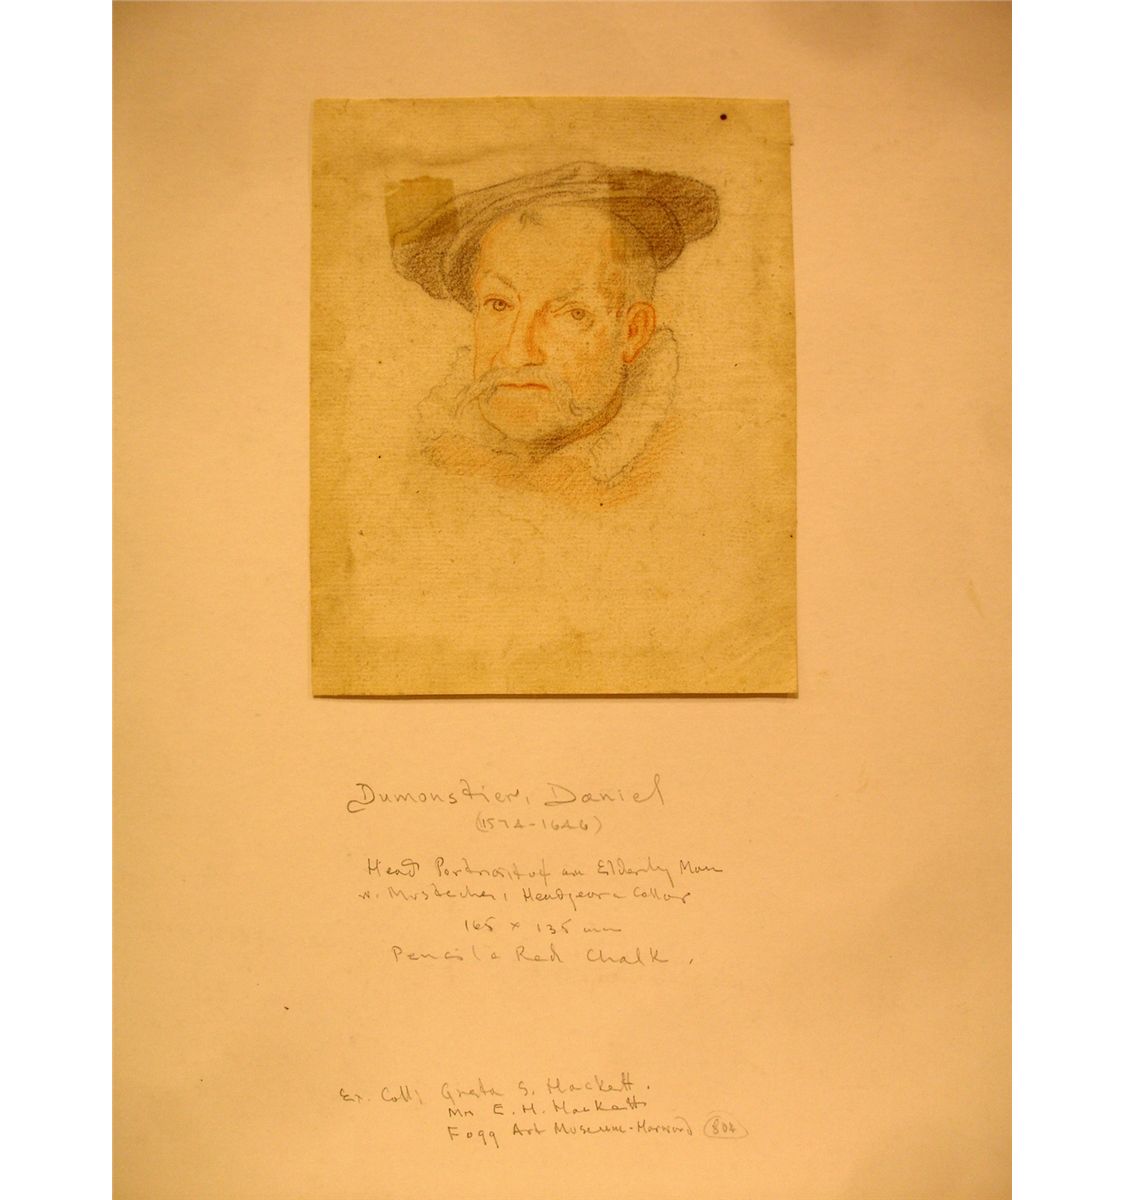 Dumonstier, Daniel
(1574-1646)
Head Portrait of an Elderly Man
w. Mustache, Headgear & Collar
165 x 135 mm
Pencil & Red Chalk.
Ex. Coll; Greta S. Hackett.
Mrs E. H. Hackett
Fogg Art Museum-Harvard 804